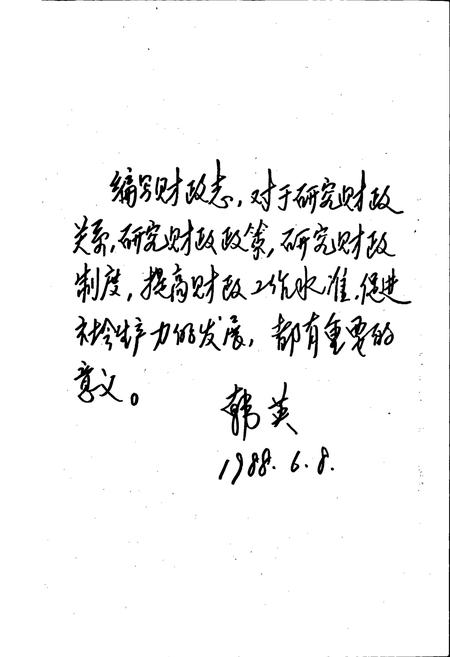 编写财政志，对于研究财政
关系，研究财政政策，研究财政
制度，提高财政工作水准，促进
社会生产力的发展，都有重要的
意义。
韩英
1988.6.8.